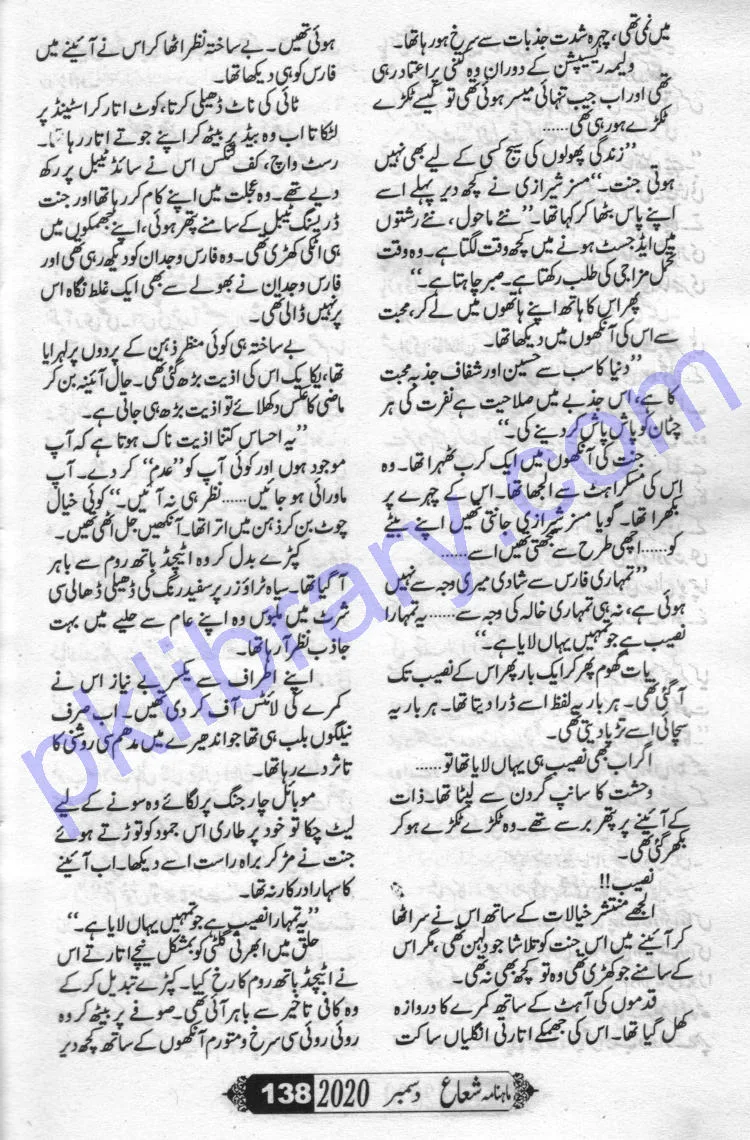 میں نمی تھی، چہرہ شدت جذبات سے سرخ ہو رہا تھا۔
ولیمہ ریسیپشن کے دوران وہ کتنی پر اعتماد رہی
تھی اور اب جب تنہائی میسر ہوئی تھی تو کیسے ٹکڑے
ٹکڑے ہو رہی تھی......
”زندگی پھولوں کی سیج کسی کے لیے بھی نہیں
ہوتی جنت۔“ مسز شیرازی نے کچھ دیر پہلے اسے
اپنے پاس بٹھا کر کہا تھا۔ ”نئے ماحول، نئے رشتوں
میں ایڈجسٹ ہونے میں کچھ وقت لگتا ہے۔ وہ وقت
تحمل مزاجی کی طلب رکھتا ہے۔ صبر چاہتا ہے۔“
پھر اس کا ہاتھ اپنے ہاتھوں میں لے کر، محبت
سے اس کی آنکھوں میں دیکھا تھا۔
”دنیا کا سب سے حسین اور شفاف جذبہ محبت
کا ہے، اس جذبے میں صلاحیت ہے نفرت کی ہر
چٹان کو پاش پاش کر دینے کی۔“
جنت کی آنکھوں میں ایک کرب ٹھہرا تھا۔ وہ
اس کی مسکراہٹ سے الجھا تھا۔ اس کے چہرے پر
بکھرا تھا۔ گویا مسز شیرازی جانتی تھیں اپنے بیٹے
کو...... اچھی طرح سے سمجھتی تھیں اسے......
”تمہاری فارس سے شادی میری وجہ سے نہیں
ہوئی ہے، نہ ہی تمہاری خالہ کی وجہ سے...... یہ تمہارا
نصیب ہے جو تمہیں یہاں لایا ہے۔“
بات گھوم پھر کر ایک بار پھر اس کے نصیب تک
آ گئی تھی۔ ہر بار یہ لفظ اسے ڈرا دیتا تھا۔ ہر بار یہ
سچائی اسے تڑپا دیتی تھی۔
اگر اب بھی نصیب ہی یہاں لایا تھا تو......
وحشت کا سانپ گردن سے لپٹا تھا۔ ذات
کے آئینے پر پتھر برسے تھے۔ وہ ٹکڑے ٹکڑے ہو کر
بکھر گئی تھی۔
نصیب!!
الجھے منتشر خیالات کے ساتھ اس نے سر اٹھا
کر آئینے میں اس جنت کو تلاشا جو دلہن تھی، مگر اس
کے سامنے جو کھڑی تھی وہ تو کچھ بھی نہ تھی۔
قدموں کی آہٹ کے ساتھ کمرے کا دروازہ
کھل گیا تھا۔ اس کی جھمکے اتارتی انگلیاں ساکت
ہوئی تھیں۔ بے ساختہ نظر اٹھا کر اس نے آئینے میں
فارس کو ہی دیکھا تھا۔
ٹائی کی ناٹ ڈھیلی کرتا، کوٹ اتار کر اسٹینڈ پر
لٹکاتا اب وہ بیڈ پر بیٹھ کر اپنے جوتے اتار رہا تھا۔
رسٹ واچ، کف لنکس اس نے سائڈ ٹیبل پر رکھ
دیے تھے۔ وہ عجلت میں اپنے کام کر رہا تھا اور جنت
ڈریسنگ ٹیبل کے سامنے پتھر ہوئی، اپنے جھمکوں میں
ہی اٹکی کھڑی تھی۔ وہ فارس وجدان کو دیکھ رہی تھی اور
فارس وجدان نے بھولے سے بھی ایک غلط نگاہ اس
پر نہیں ڈالی تھی۔
بے ساختہ ہی کوئی منظر ذہن کے پردوں پر لہرایا
تھا، یکایک اس کی اذیت بڑھ گئی تھی۔ حال آئینہ بن کر
ماضی کا عکس دکھلائے تو اذیت بڑھ ہی جاتی ہے۔
”یہ احساس کتنا اذیت ناک ہوتا ہے کہ آپ
موجود ہوں اور کوئی آپ کو ”عدم“ کر دے۔ آپ
ماورائی ہو جائیں...... نظر ہی نہ آئیں۔“ کوئی خیال
چوٹ بن کر ذہن میں اترا تھا۔ آنکھیں جل اٹھی تھیں۔
کپڑے بدل کر وہ اٹیچڈ باتھ روم سے باہر
آ گیا تھا۔ سیاہ ٹراؤزر پر سفید رنگ کی ڈھیلی ڈھالی سی
شرٹ میں ملبوس وہ اپنے عام سے حلیے میں بہت
جاذب نظر آ رہا تھا۔
اپنے اطراف سے یکسر بے نیاز اس نے
کمرے کی لائٹس آف کر دی تھیں۔ اب صرف
نیلگوں بلب ہی تھا جو اندھیرے میں مدھم سی روشنی کا
تاثر دے رہا تھا۔
موبائل چارجنگ پر لگائے وہ سونے کے لیے
لیٹ چکا تو خود پر طاری اس جمود کو توڑتے ہوئے
جنت نے مڑ کر براہ راست اسے دیکھا۔ اب آئینے
کا سہارا درکار نہ تھا۔
”یہ تمہارا نصیب ہے جو تمہیں یہاں لایا ہے۔“
حلق میں ابھرتی گلٹی کو بمشکل نیچے اتارتے اس
نے اٹیچڈ باتھ روم کا رخ کیا۔ کپڑے تبدیل کر کے
وہ کافی تاخیر سے باہر آئی تھی۔ صوفے پر بیٹھ کر وہ
روئی روئی سی سرخ و متورم آنکھوں کے ساتھ کچھ دیر
ماہنامہ شعاع دسمبر 2020 138
pklibrary.com